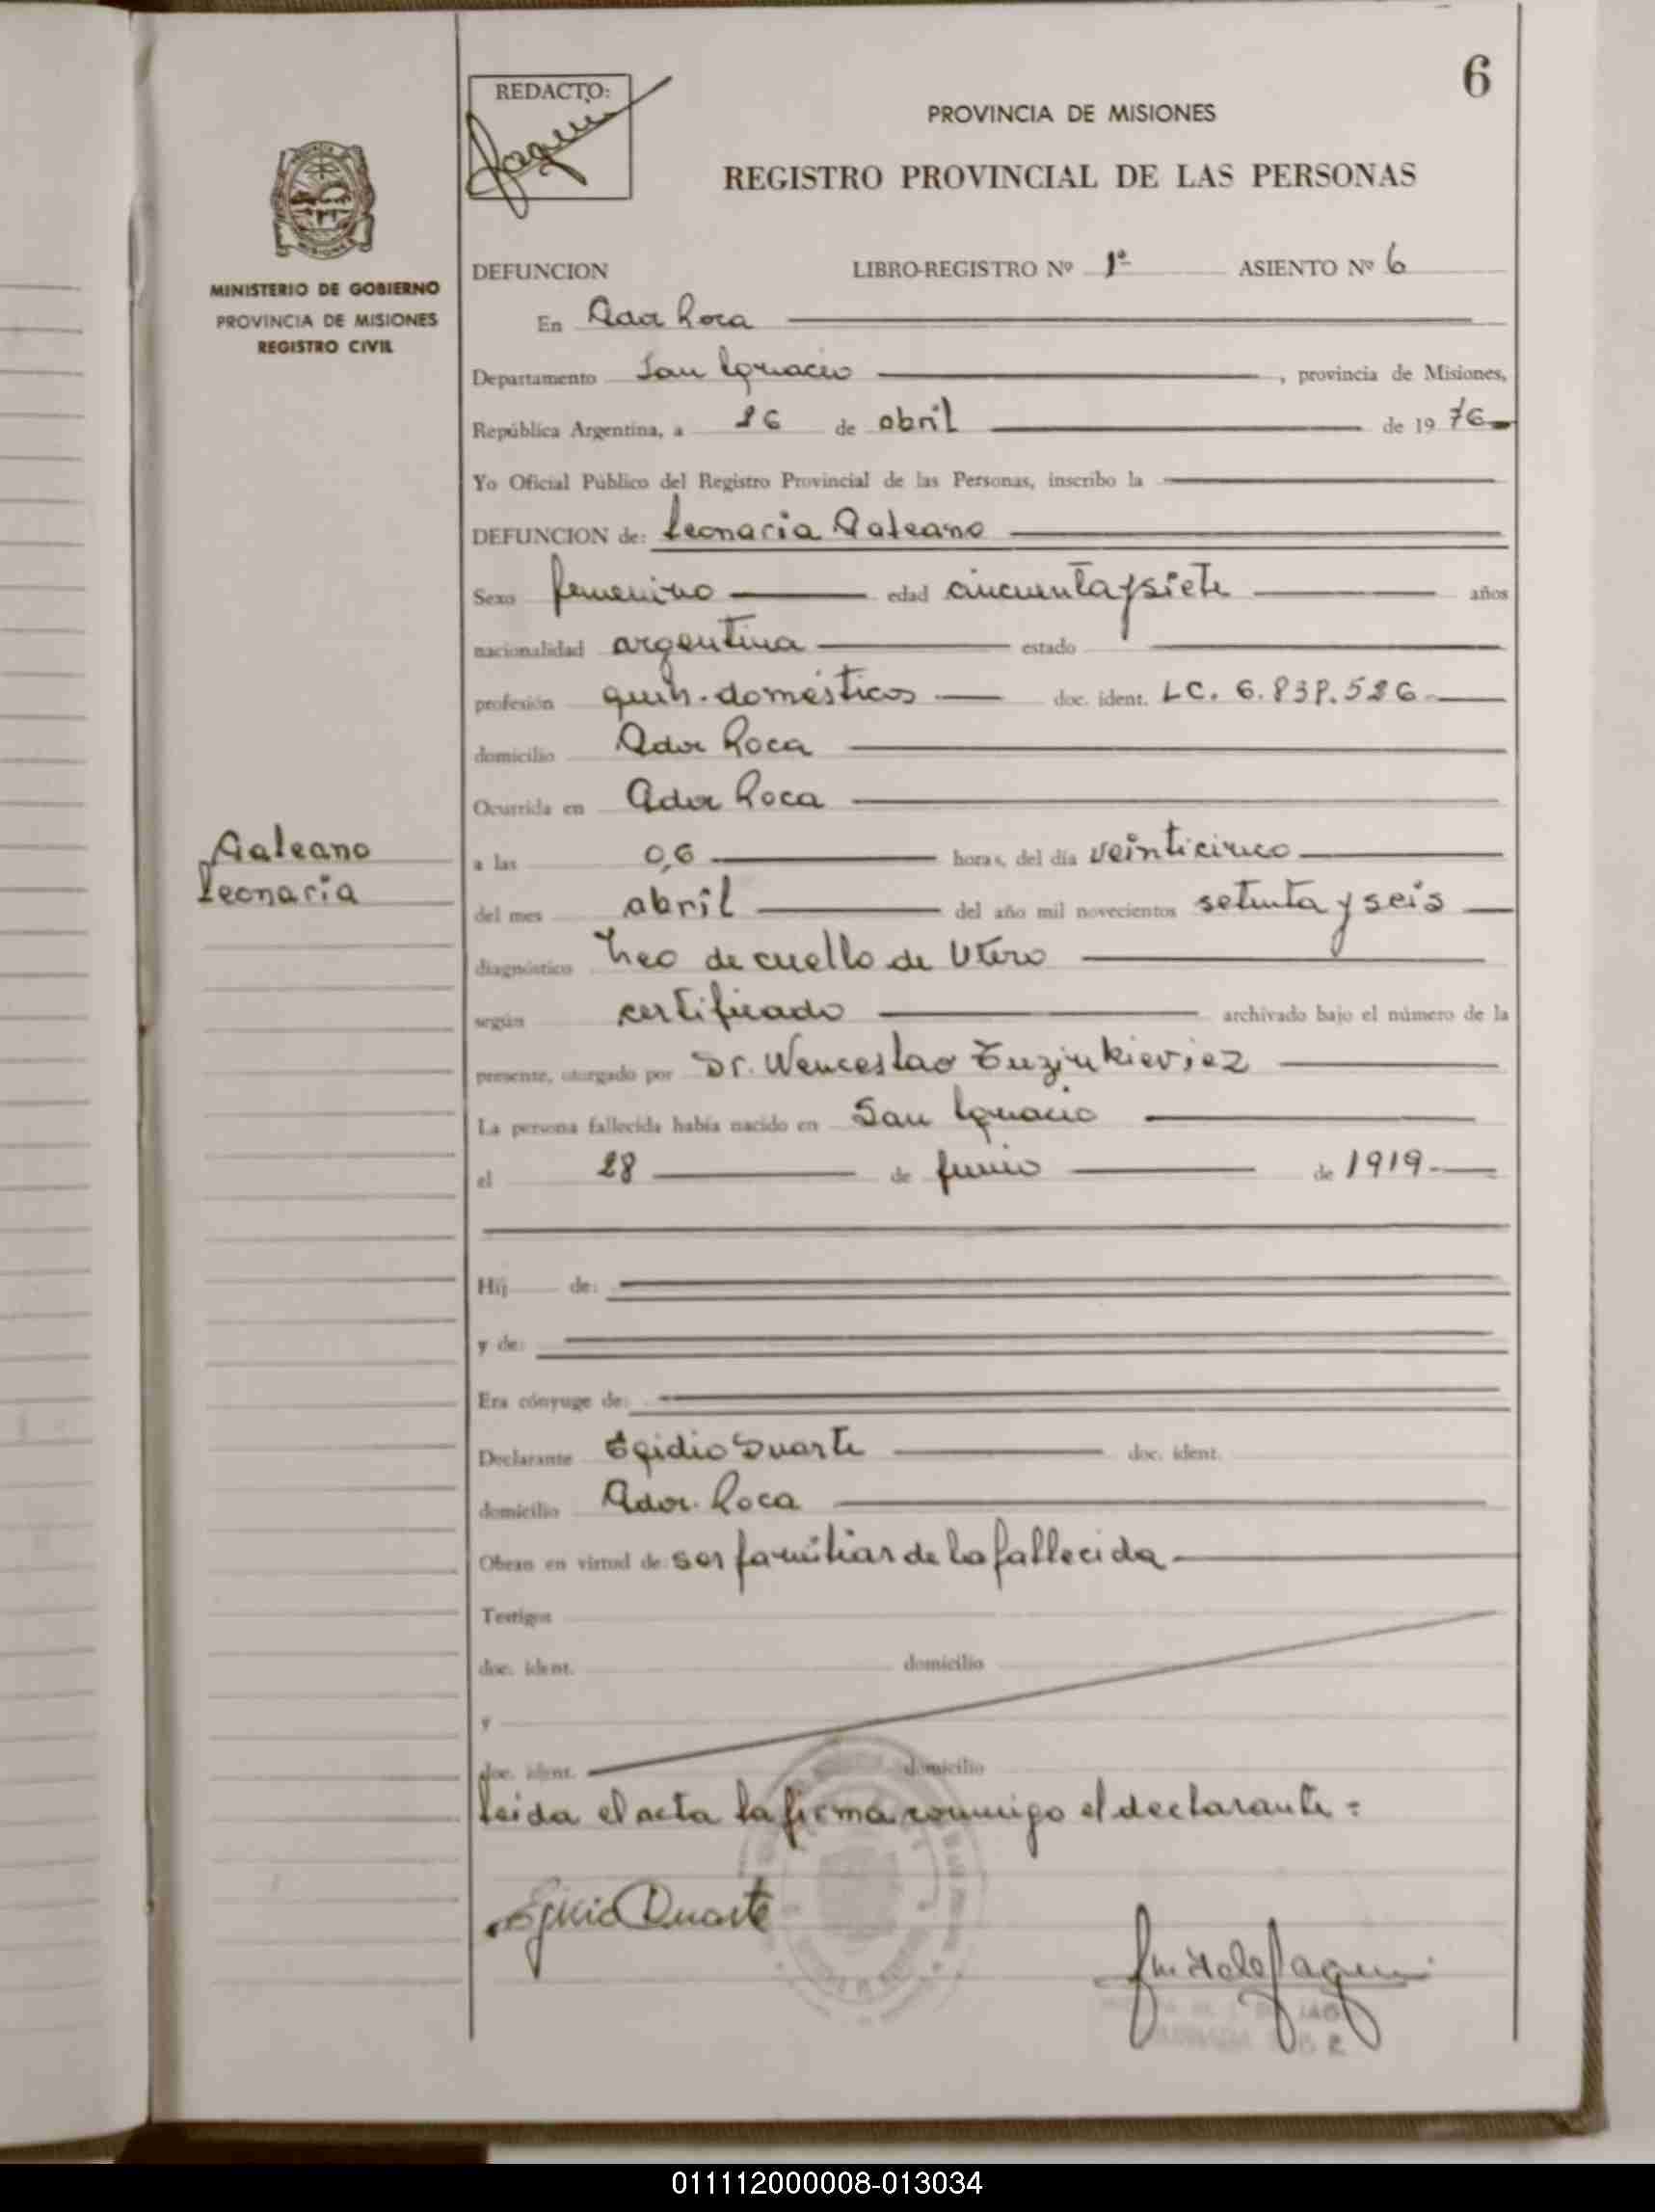 6
REDACTO:
PROVINCIA DE MISIONES
REGISTRO PROVINCIAL DE LAS PERSONAS
MINISTERIO DE GOBIERNO
PROVINCIA DE MISIONES
REGISTRO CIVIL
DEFUNCION LIBRO-REGISTRO Nº 1º ASIENTO Nº 6
En Ador Roca
Departamento San Ignacio, provincia de Misiones,
República Argentina, a 26 de abril de 1976
Yo Oficial Público del Registro Provincial de las Personas, inscribo la
DEFUNCION de: Leonaria Galeano
Sexo femenino edad cincuenta y siete años
nacionalidad argentina estado
profesión queh. domésticos doc. ident. LC.
domicilio Ador Roca
Ocurrida en Ador Roca
Galeano
Leonaria
a las 0,6 horas, del día veinticinco
del mes abril del año mil novecientos setenta y seis
diagnóstico Neo de cuello de Utero
según certificado archivado bajo el número de la
presente, otorgado por Dr. Wenceslao
La persona fallecida había nacido en San Ignacio
el 28 de junio de 1919
Hij de:
y de:
Era cónyuge de:
Declarante Egidio Duarte doc. ident.
domicilio Ador. Roca
Obran en virtud de: ser familiar de la fallecida
Testigos
doc. ident. domicilio
y
doc. ident. domicilio
Leida el acta la firma conmigo el declarante =
Egidio Duarte
011112000008-013034